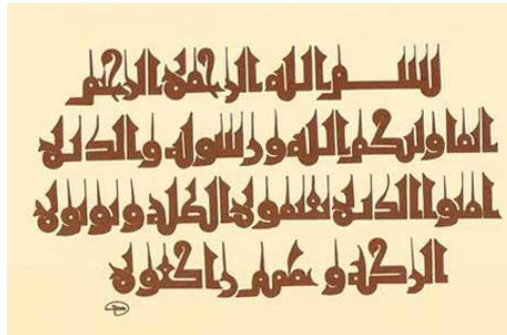 بسم الله الرحمن الرحيم
انما وليكم الله ورسوله والذين
امنوا الذين يقيمون الصلوة ويوتون
الزكوة وهم راكعون